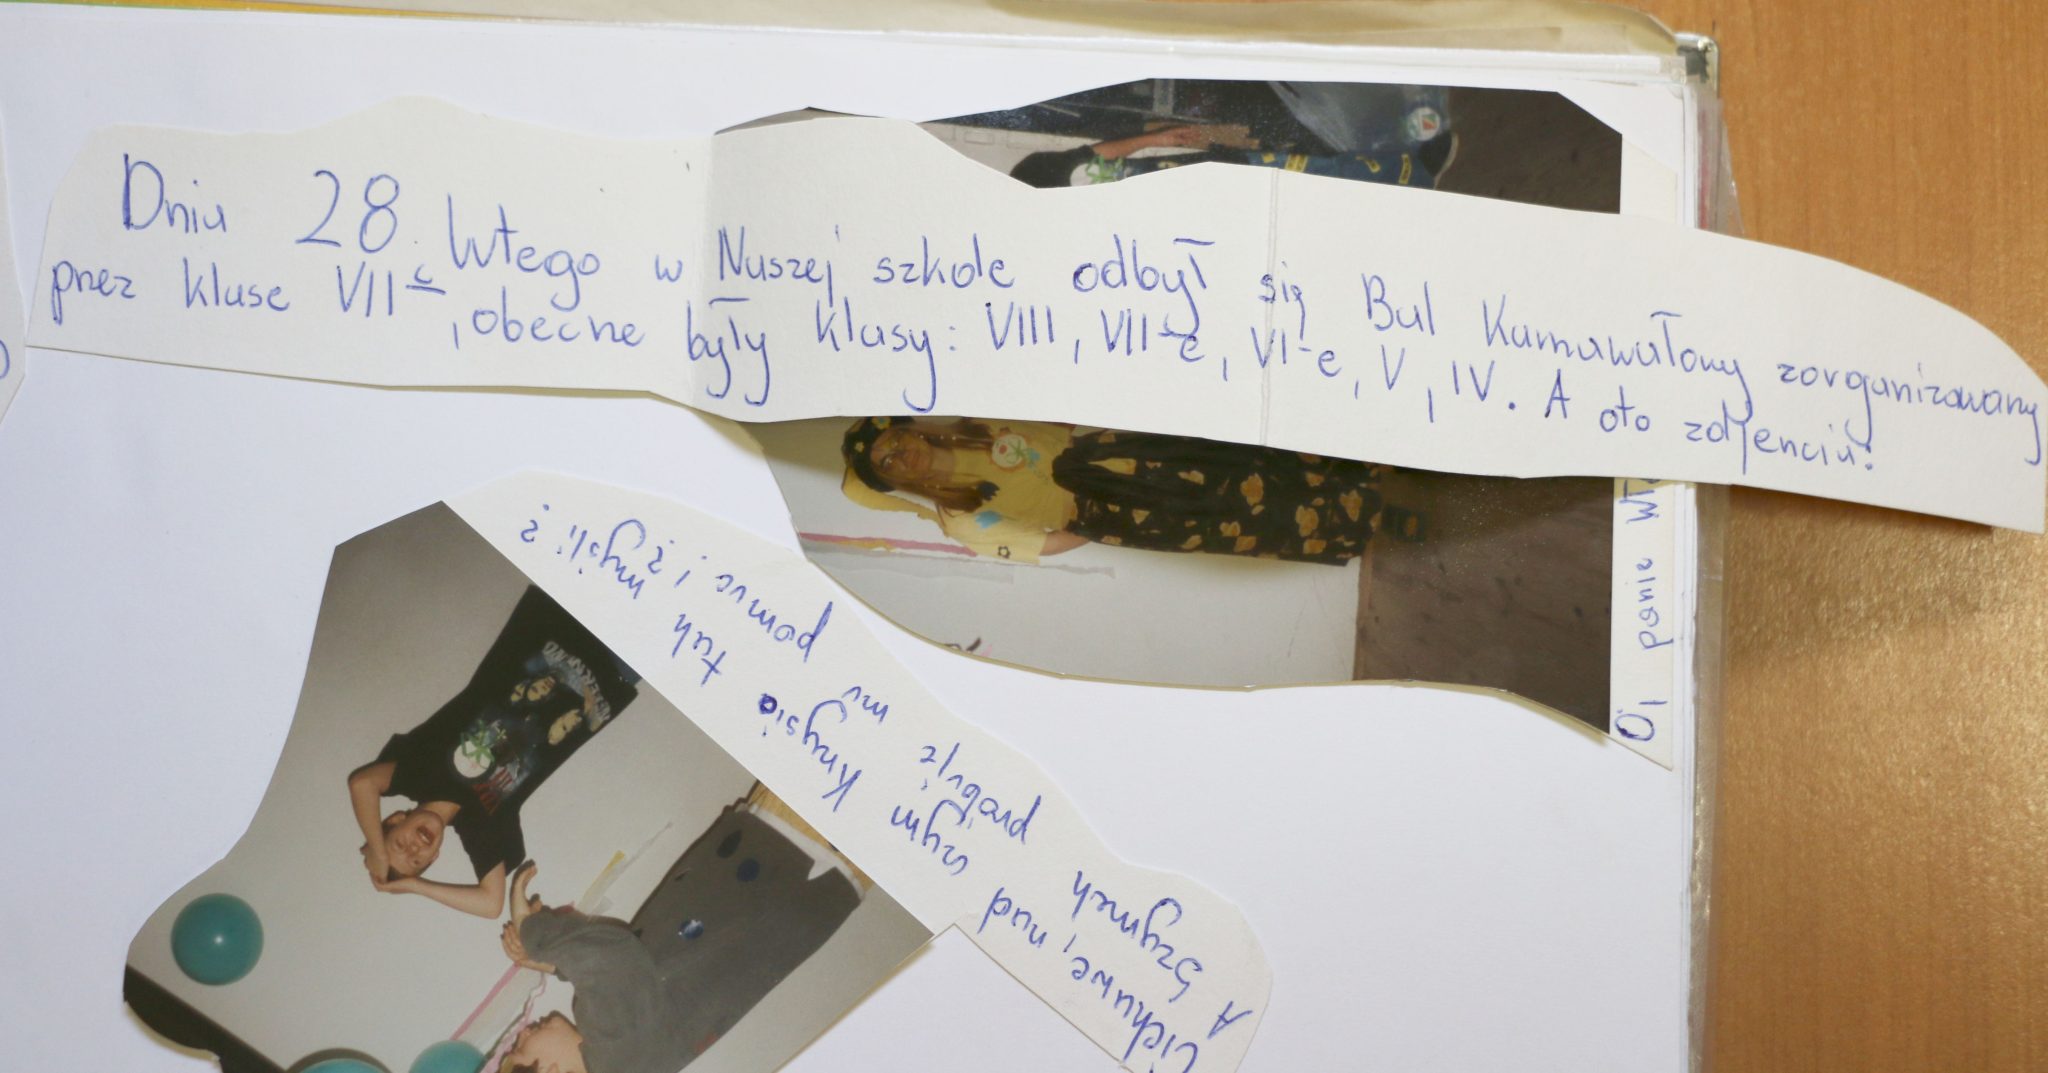 Dnia 28 lutego w Naszej szkole odbył się Bal Karnawałowy zorganizowany
przez klase VII c, obecne były klasy: VIII, VII-c, VI-c, V, IV. A oto zdjencia:
Ciekawe, nad czym Krzysio tak myśli?
A Szymek próbuje mu pomuc i?
Oj panie